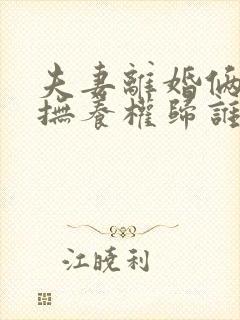 夫妻離婚俩
撫養權歸誰
江曉利